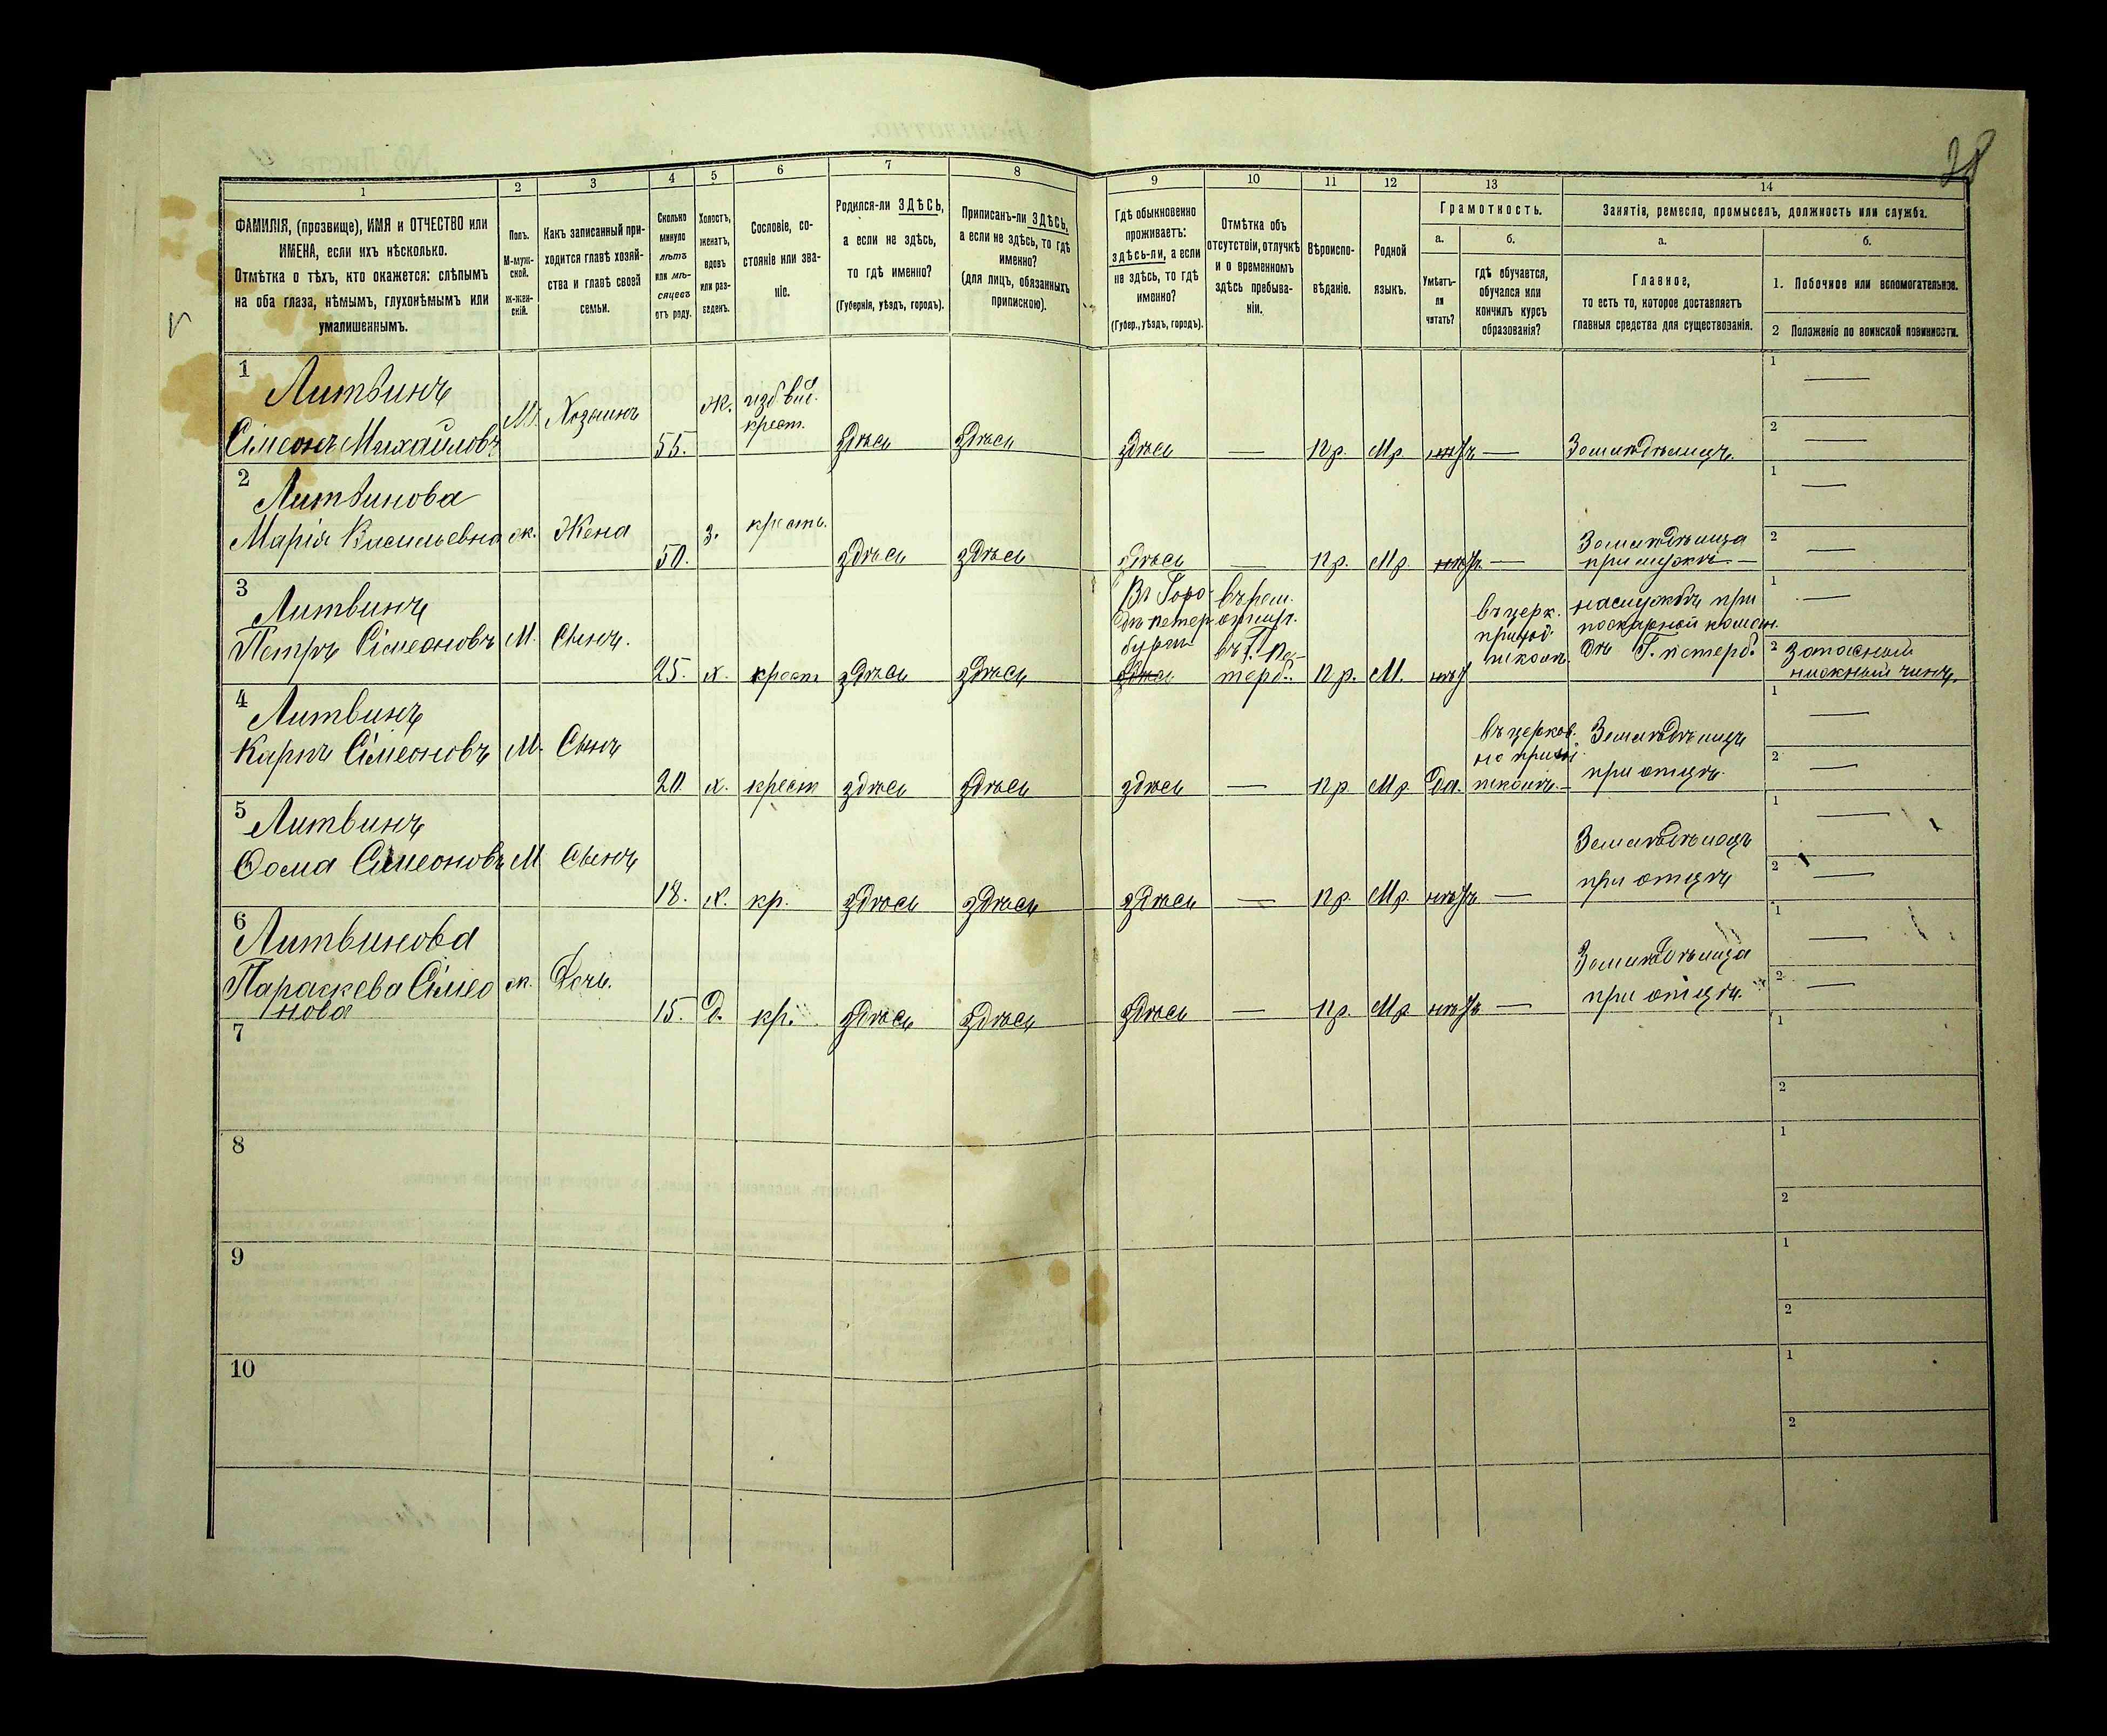 28
1 2 3 4 5 6 7 8 9 10 11 12 13 14
ФАМИЛІЯ, (прозвище), ИМЯ и ОТЧЕСТВО или
ИМЕНА, если ихъ нѣсколько.
Отмѣтка о тѣхъ, кто окажется: слѣпымъ
на оба глаза, нѣмымъ, глухонѣмымъ или
умалишеннымъ.
Полъ.
М-муж-
ской.
Ж-жен-
скій.
Какъ записанный при-
ходится главѣ хозяй-
ства и главѣ своей
семьи.
Сколько
минуло
лѣтъ
или мѣ-
сяцевъ
отъ роду.
Холостъ,
женатъ,
вдовъ
или раз-
веденъ.
Сословіе, со-
стояніе или зва-
ніе.
Родился-ли ЗДѢСЬ,
а если не здѣсь,
то гдѣ именно?
(Губернія, уѣздъ, городъ).
Приписанъ-ли ЗДѢСЬ,
а если не здѣсь, то гдѣ
именно?
(для лицъ, обязанныхъ
припискою).
Гдѣ обыкновенно
проживаетъ:
здѣсь-ли, а если
не здѣсь, то гдѣ
именно?
(Губер., уѣздъ, городъ).
Отмѣтка объ
отсутствіи, отлучкѣ
и о временномъ
здѣсь пребыва-
ніи.
Вѣроиспо-
вѣданіе.
Родной
языкъ.
Грамотность.
а.
Умѣетъ-
ли
читать?
б.
гдѣ обучается,
обучался или
кончилъ курсъ
образованія?
Занятіе, ремесло, промыселъ, должность или служба.
а.
Главное,
то есть то, которое доставляетъ
главныя средства для существованія.
б.
1. Побочное или вспомогательное.
2 Положеніе по воинской повинности.
1
Литвинъ
Сімеонъ Михайловъ
М. Хозяинъ 55. Ж.
крест.
здѣсь здѣсь здѣсь — Пр. Мр. нѣтъ — Земледѣлецъ.
1 —
2 —
2
Литвинова
Марія Васильевна
ж. Жена 50. З. крестъ.
здѣсь здѣсь здѣсь — Пр. Мр. нѣтъ —
Земледѣлица
при мужѣ. —
1 —
2 —
3
Литвинъ
Петръ Сімеоновъ
М. Сынъ. 25. Х. крест здѣсь здѣсь
Въ Горо-
дѣ Петер
бургѣ
здѣсь
въ Г. Пе-
терб. Пр. М. нѣт
въ церк.
приход.
школѣ.
на службѣ при
пожарной коман.
дѣ Г. Петерб.
1 —
2 Запасный
нижній чинъ.
4
Литвинъ
Карпъ Сімеоновъ
М. Сынъ 20. Х. крест здѣсь здѣсь здѣсь — Пр Мр. Да.
въ церков.
но прихо
школѣ. —
Земледѣлецъ
при отцѣ.
1 —
2 —
5
Литвинъ
Ѳома Сімеоновъ
М Сынъ 18. Х. кр. здѣсь здѣсь здѣсь — Пр. Мр. нѣтъ —
Земледѣлецъ
при отцѣ
1 —
2 —
6
Литвинова
Параскева Сімео
нова
ж. Дочь. 15. Д. кр. здѣсь здѣсь здѣсь — Пр. Мр нѣтъ —
Земледѣлица
при отцѣ.
1 —
2 —
7
1
2
8
1
2
9
1
2
10
1
2